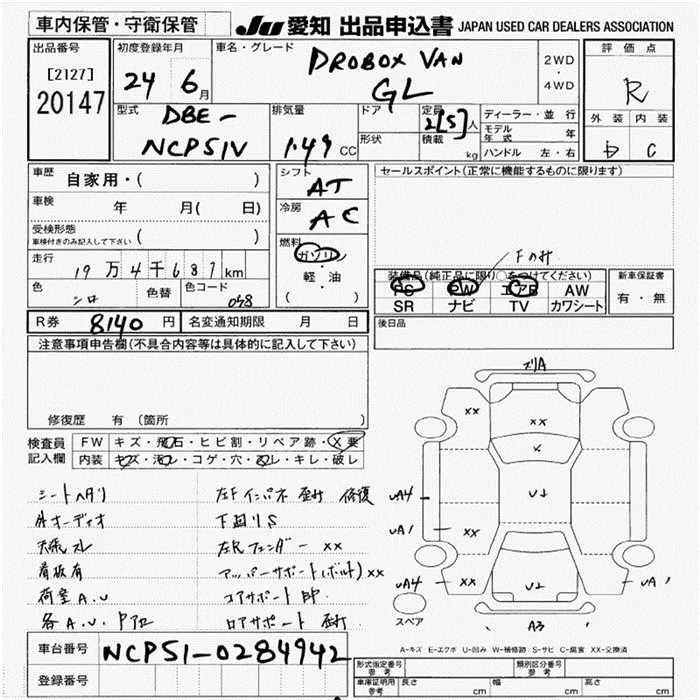 車内保管・守衛保管
JU 愛知 出品申込書 JAPAN USED CAR DEALERS ASSOCIATION
出品番号
[2127]
20147
初度登録年月
24 6月
車名・グレード
PROBOX VAN
GL
2WD
・
4WD
評価点
R
外装 内装
C
型式
DBE-
NCP51V
排気量
1.49 CC
ドア
形状
定員
2[5]人
積載
kg
ディーラー・並行
モデル年式 年
ハンドル 左・右
車歴
自家用・( )
車検
年 月( 日)
受検形態
車検付きのみ記入して下さい ( )
走行
19万4千687km
色
シロ
色替
色コード
058
シフト
AT
冷房
AC
燃料
ガソリン
・
軽・油
( )
セールスポイント(正常に機能するものに限ります)
Fのみ
装備品(純正品に限り○をつけてください)
PS PW エアB AW
SR ナビ TV カワシート
新車保証書
有・無
後日品
R券 8140円
名変通知期限 月 日
注意事項申告欄(不具合内容等は具体的に記入して下さい)
修復歴 有 (箇所 )
検査員記入欄
FW キズ・飛石・ヒビ割・リペア跡・X要
内装 キズ・汚レ・コゲ・穴・スレ・キレ・破レ
シートヘタリ
外オーディオ
天張スレ
看板有
荷室A.U
各A.U.
左Fインパネ 修復
下回りS
左Rフェンダー XX
アッパーサポート(ボルト)XX
コアサポート
ロアサポート
ズリA
XX
XX
X
UA4
U1
UA1
XX
UA4
XX
U2
UA1
A3
スペア
A-キズ E-エクボ U-凹み W-補修跡 S-サビ C-腐食 XX-交換済
車台番号
NCP51-0284942
登録番号
形式指定番号 参考
類別区分番号 参考
車庫証明用 参考
長さ cm
幅 cm
高さ cm